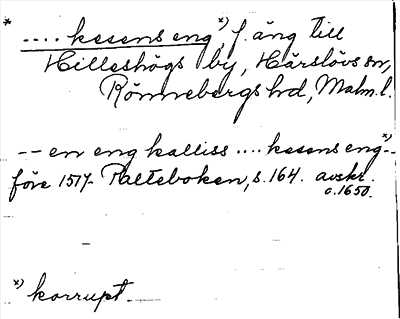 * .... kesens eng x) f. äng till
Hilleshögs by, Härslövs sn,
Rönnebergs hd, Malm. l.
-- en eng kalliss .... kesens eng x)--
före 1517- Palteboken, s. 164. avskr.
c. 1650.
x) korrupt.